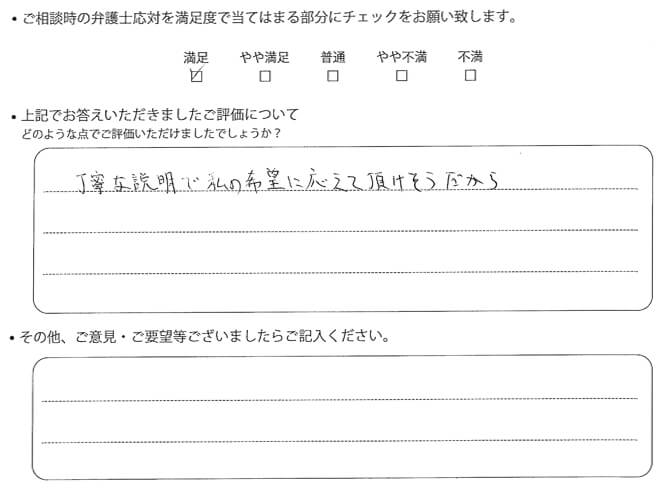 • ご相談時の弁護士応対を満足度で当てはまる部分にチェックをお願い致します。
満足 やや満足 普通 やや不満 不満
☑ □ □ □ □
• 上記でお答えいただきましたご評価について
どのような点でご評価いただけましたでしょうか？
丁寧な説明で私の希望に応えて頂けそうだから
• その他、ご意見・ご要望等ございましたらご記入ください。